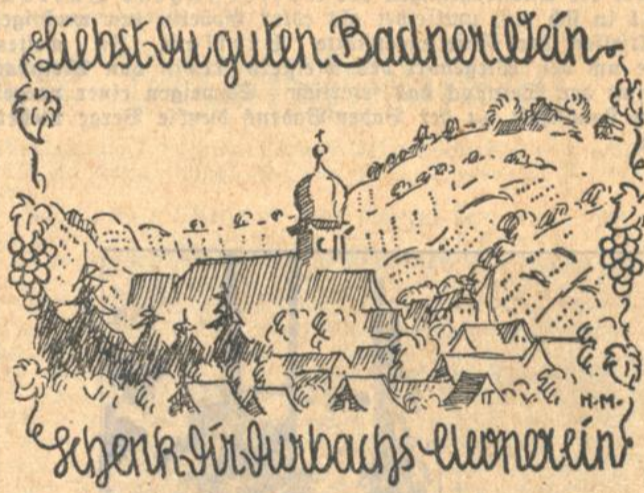 Liebst Du guten Badner Wein
H.M.
schenk Dir Durbachs Clevner ein